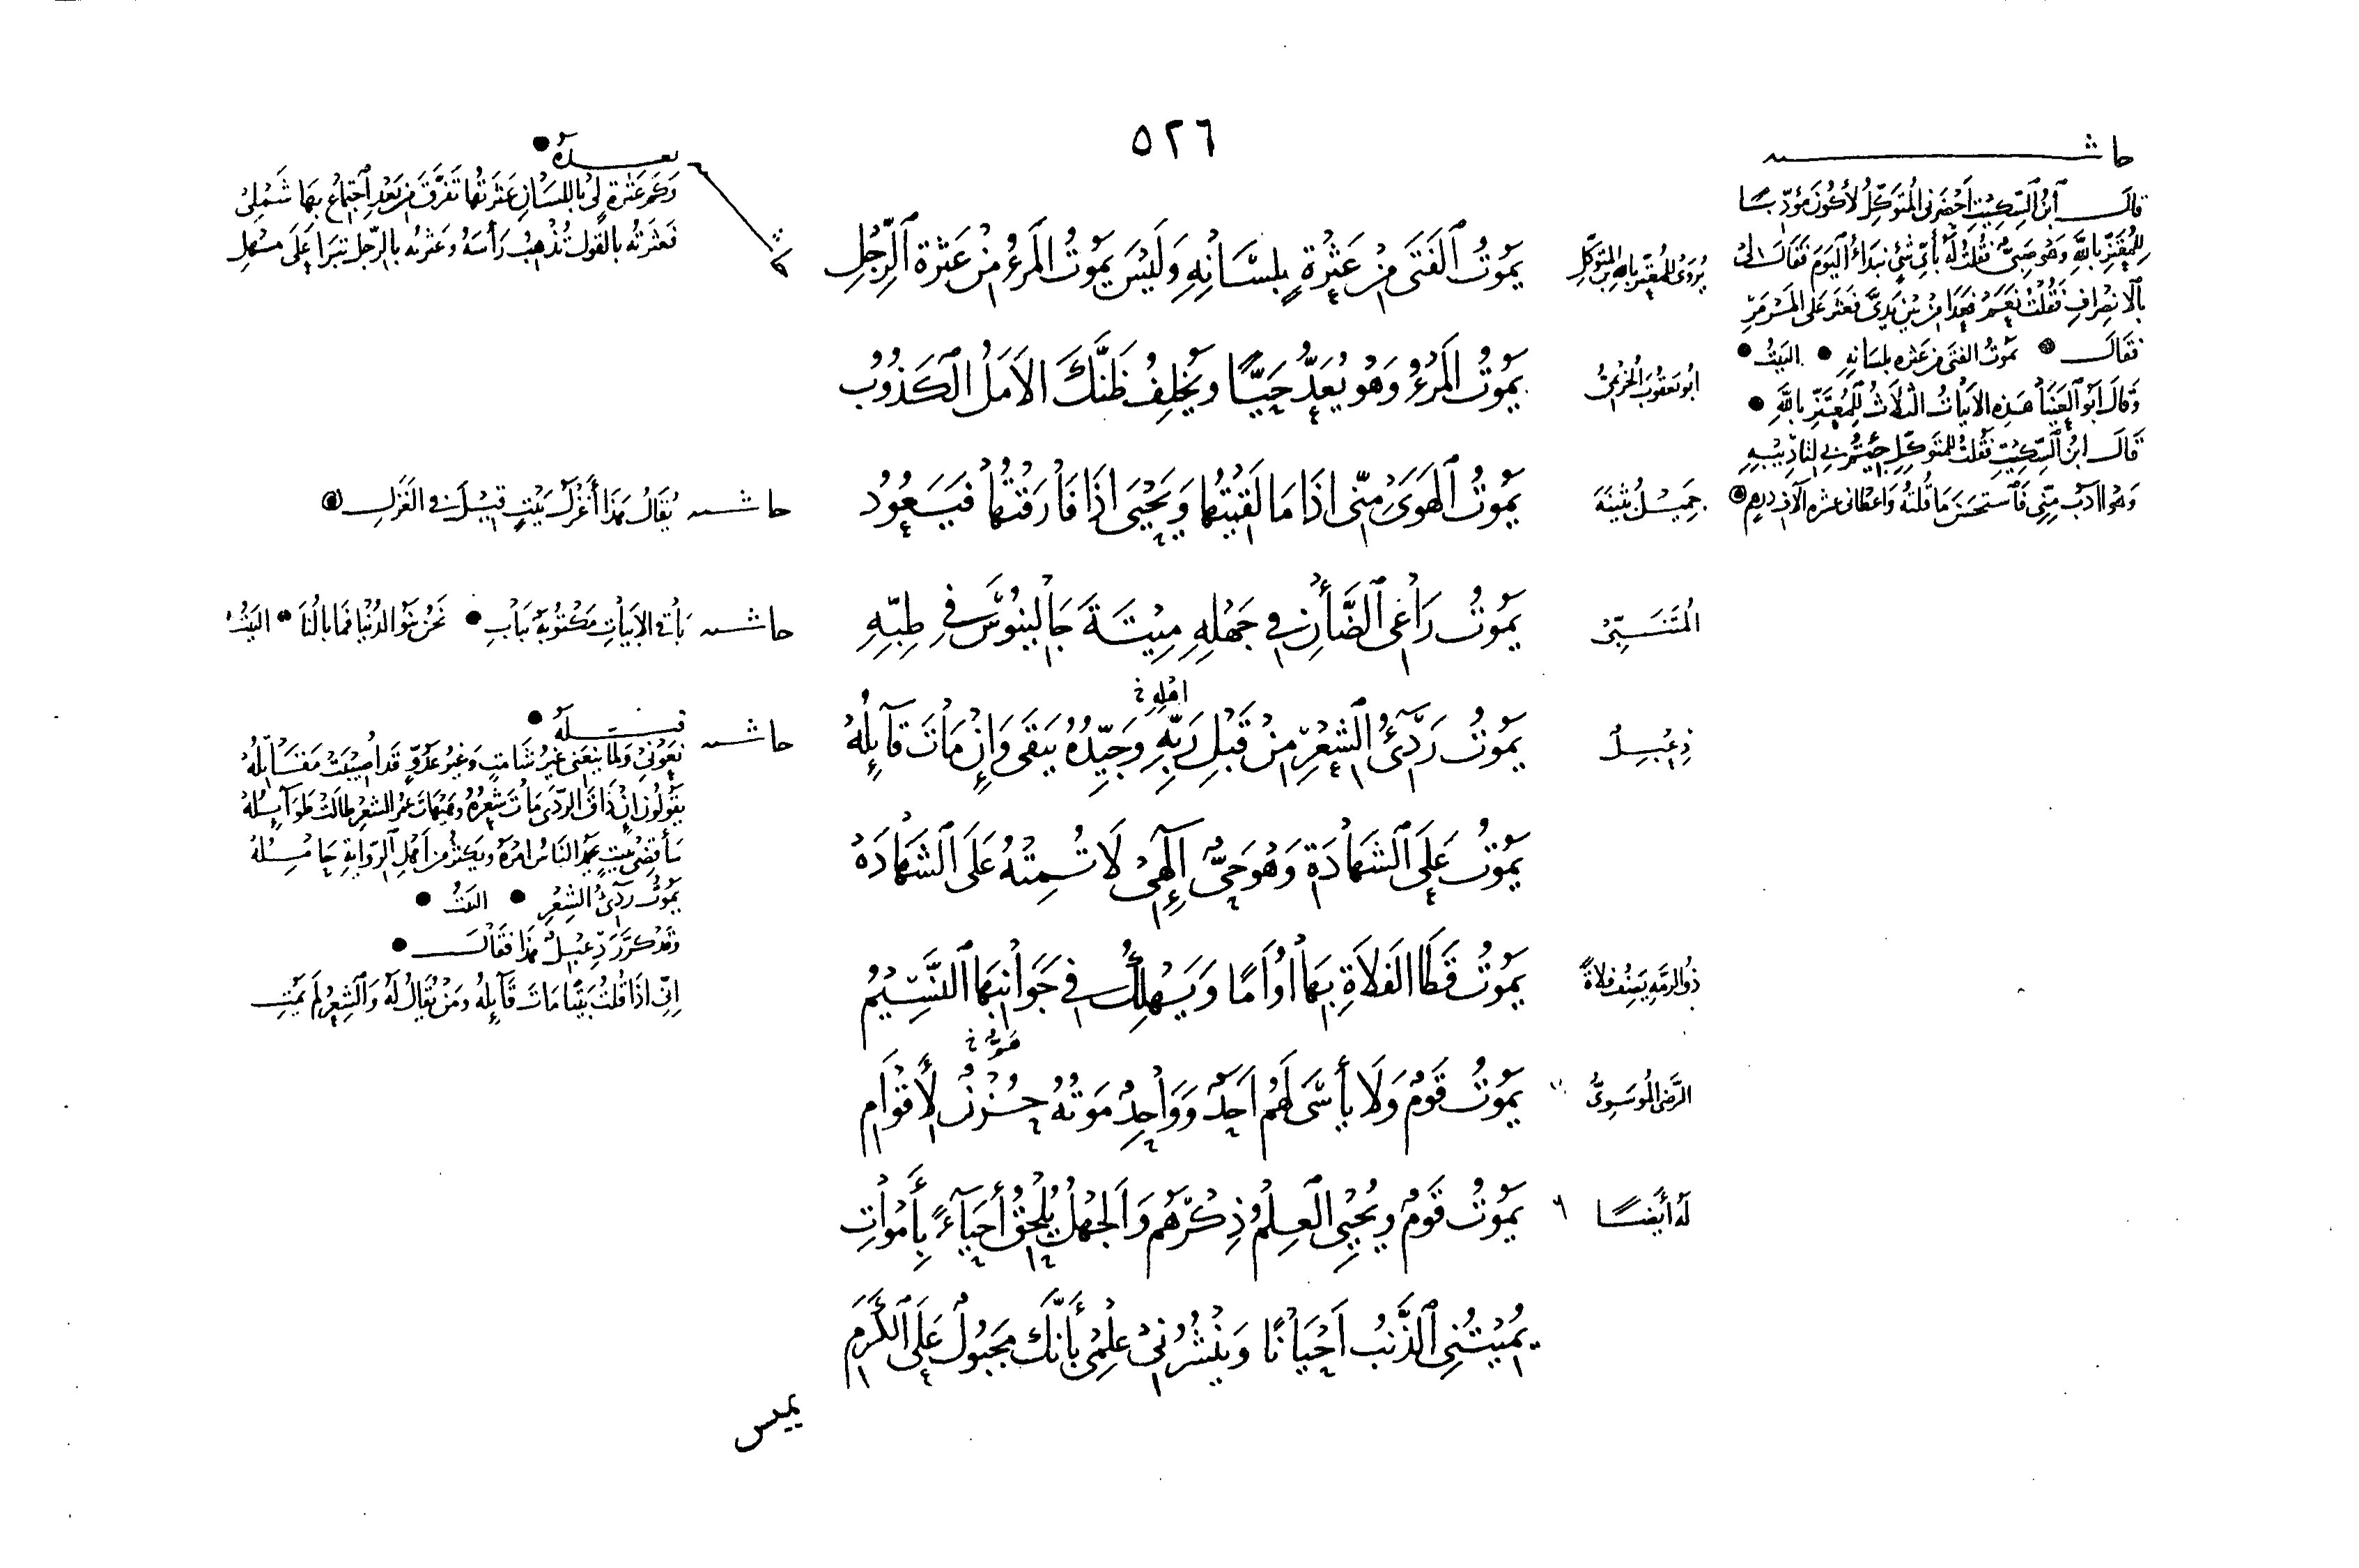 ٥٢٦
حاشية
قَالَ ابْنُ السِّكِّيتِ أَحْضَرَنِي المُتَوَكِّلُ لأَكُونَ مُؤَدِّبًا
لِلْمُعْتَزِّ بِاللَّهِ وَهُوَ صَبِيٌّ فَقُلْتُ لَهُ بِأَيِّ شَيْءٍ نَبْدَأُ الْيَوْمَ فَقَالَ لِي
بِالانْصِرَافِ فَقُلْتُ نَعَمْ فَعَدَا مِنْ بَيْنِ يَدَيَّ فَعَثَرَ عَلَى
فَقَالَ • يَمُوتُ الفَتَى مِنْ عَثْرَةٍ بِلِسَانِهِ • البَيْتُ •
وَقَالَ أَبُو الْعَيْنَاءِ هَذِهِ الأَبْيَاتُ الثَّلاثُ لِلْمُعْتَزِّ بِاللَّهِ •
قَالَ ابْنُ السِّكِّيتِ فَقُلْتُ لِلْمُتَوَكِّلِ جِئْتُمْ بِي لِتَأْدِيبِهِ
وَهُوَ آدَبُ مِنِّي فَاسْتَحْسَنَ مَا قُلْتُهُ وَأَعْطَانِي عَشْرَةَ آلافِ دِرْهَمٍ
يُرْوَى لِلْمُعْتَزِّ بِاللَّهِ بْنِ الْمُتَوَكِّلِ
يَمُوتُ ٱلفَتَى مِنْ عَثْرَةٍ بِلِسَانِهِ وَلَيْسَ يَمُوتُ المَرءُ مِنْ عَثْرَةِ ٱلرِّجْلِ
بَعْدَهُ •
وَكَمْ عَثْرَةٍ لِي بِاللِّسَانِ عَثَرْتُهَا تَفَرَّقَ مِنْ بَعْدِ اجْتِمَاعٍ بِهَا شَمْلِي
فَعَثْرَتُهُ بِالقَوْلِ تُذْهِبُ رَأْسَهُ وَعَثْرَتُهُ بِالرِّجْلِ تَبْرَا عَلَى مَهْلِ
أبُو يَعْقُوبَ الخُرَيْمِيُّ
يَمُوتُ المَرْءُ وَهُوَ يُعَدُّ حَيًّا وَيُخْلِفُ ظَنَّكَ الأَمَلُ الْكَذُوبُ
جَمِيْلُ بُثَيْنَةَ
يَمُوتُ ٱلهَوَى مِنِّي إذَا مَا لَقِيْتُهَا وَيَحْيَى إِذَا فَارَقْتُهَا فَيَعُوْدُ
حاشية يُقَالُ هَذَا أَغْزَلُ بَيْتٍ قِيْلَ فِي الغَزَلِ
المُتَنَبِّي
يَمُوتُ رَاْعِي ٱلضَّأْنِ فِي جَهْلِهِ مِيْتَةَ جَالِيْنُوْسَ فِي طِبِّهِ
حاشية بَاقِي الأَبْيَاتِ مَكْتُوبَةٌ بِبَابِ • نَحْنُ بَنُو الدُّنْيَا فَمَا بَالُنَا • البَيْتُ
أهْلِهِ خ
دِعْبِلٌ
يَمُوتُ رَدِيْءُ الشِّعْرِ مِنْ قَبْلِ رَبِّهِ وَجَيِّدُهُ يَبْقَى وَإِنْ مَاتَ قَائِلُهُ
حاشية قَبْلَهُ •
نَعَوْنِي وَلَمَّا يَنْعَنِي غَيْرُ شَامِتٍ وَغَيْرُ عَدُوٍّ قَدْ أُصِيْبَتْ مَقَاتِلُهُ
يَقُولُونَ إِنْ ذَاقَ الرَّدَى مَاتَ شِعْرُهُ وَهَيْهَاتَ عُمْرُ الشِّعْرِ طَالَتْ طَوَائِلُهُ
سَأَقْضِي بِبَيْتٍ يَحْمَدُ النَّاسُ أَمْرَهُ وَيَكْثُرُ مِنْ أَهْلِ الرِّوَايَةِ حَامِلُهُ
يَمُوتُ رَدِيْءُ الشِّعْرِ • البَيْتُ •
وَقَدْ كَرَّرَ دِعْبِلٌ هَذَا فَقَالَ •
إِنِّي إِذَا قُلْتُ بَيْتًا مَاتَ قَائِلُهُ وَمَنْ يُقَالُ لَهُ وَالشِّعْرُ لَمْ يَمُتِ
يَمُوتُ عَلَى ٱلشَّهَادَةِ وَهُوَ حَيٌّ إِلَهِي لاَ تُمِتْهُ عَلَى الشَّهَادَهْ
ذُو الرُّمَّةِ يَصِفُ فَلاةً
يَمُوتُ قَطَا الفَلاَةِ بِهَا أُوَامًا وَيَهْلِكُ فِي جَوَانِبِهَا النَّسِيْمُ
الرَّضِيُّ المُوسَوِيُّ
يَمُوتُ قَوْمٌ وَلاَ يَأْسَى لَهُمْ أَحَدٌ وَوَاحِدٌ مَوْتُهُ حُزْنٌ لأَقْوَامِ
لَهُ أَيْضًا
يَمُوتُ قَوْمٌ وَيُحْيِي الْعِلْمُ ذِكْرَهُمُ وَالجَهْلُ يُلْحِقُ أَحْيَاءً بِأَمْوَاتِ
يُمِيْتُنِي ٱلذَّنْبُ أَحْيَانًا وَيَنْشُرُنِي عِلْمِي بِأَنَّكَ مَجْبُولٌ عَلَى الكَرَمِ
يميس